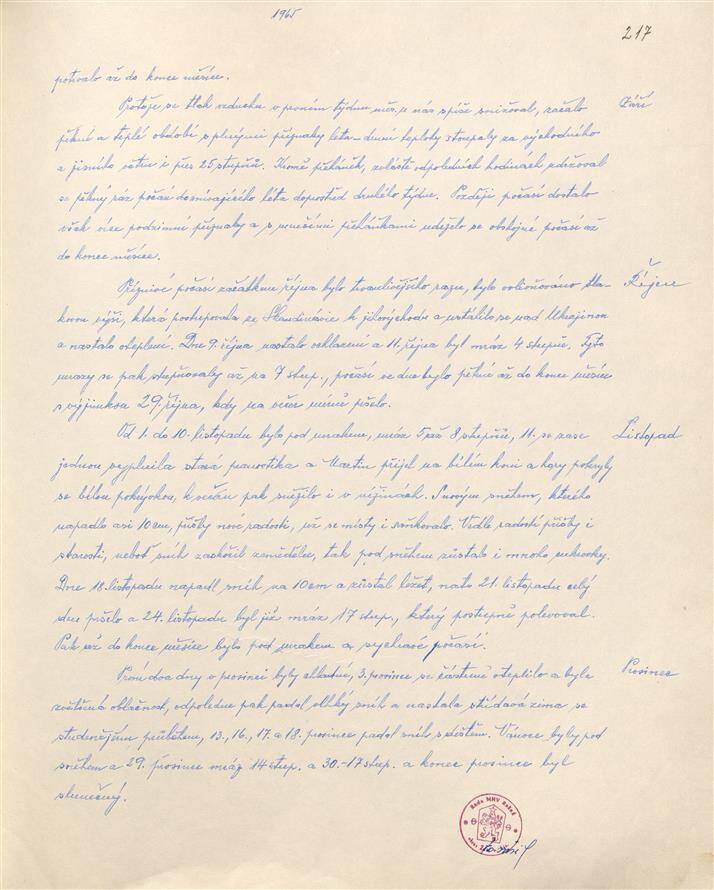 1965
217
potrvalo až do konce měsíce.
Protože se tlak vzduchu v prvním týdnu měs. u nás spíše snižoval, začalo
Září
pěkné a teplé období s plnými příznaky léta – denní teploty stoupaly za východního
a jižního větru i přes 25 stupňů. Kromě přeháněk, zvláště odpoledních hodinách udržoval
se pěkný ráz počasí doznívajícího léta doprostřed druhého týdne. Později počasí dostalo
však více podzimní příznaky a s menšími přeháňkami udrželo se obstojné počasí až
do konce měsíce.
Příznivé počasí začátkem října bylo trvanlivějšího rázu, bylo ovlivňováno tla-
Říjen
kovou výší, která postupovala ze Skandinávie k jihovýchodu a ustálilo se nad Ukrajinou
a nastalo oteplení. Dne 9. října nastalo ochlazení a 11. října byl mráz 4 stupně. Tyto
mrazy se pak stupňovaly až na 7 stup., počasí ve dne bylo pěkné až do konce měsíce
s výjimkou 29. října, kdy na večer mírně pršelo.
Od 1. do 10. listopadu bylo pod mrakem, mráz 5 až 8 stupňů, 11. se zase
Listopad
jednou vyplnila stará pranostika a Martin přijel na bílém koni a hory pokryly
se bílou pokrývkou, k večeru pak sněžilo i v nížinách. S novým sněhem, kterého
napadlo asi 10 cm, přišly nové radosti, už se místy i sáňkovalo. Vedle radostí přišly i
starosti, neboť sníh zaskočil zemědělce, tak pod sněhem zůstalo i mnoho cukrovky.
Dne 18. listopadu napadl sníh na 10 cm a zůstal ležet, nato 21. listopadu celý
den pršelo a 24. listopadu byl již mráz 17 stup., který postupně polevoval.
Pak už do konce měsíce bylo pod mrakem a sychravé počasí.
První dva dny v prosinci byly chladné, 3. prosince se částečně oteplilo a byla
Prosinec
zvětšená oblačnost, odpoledne pak padal vlhký sníh a nastala střídavá zima se
studenějším průběhem, 13., 16., 17. a 18. prosince padal sníh s deštěm. Vánoce byly pod
sněhem a 29. prosince mráz 14 stup. a 30. – 17 stup. a konec prosince byl
slunečný.
Rada MNV